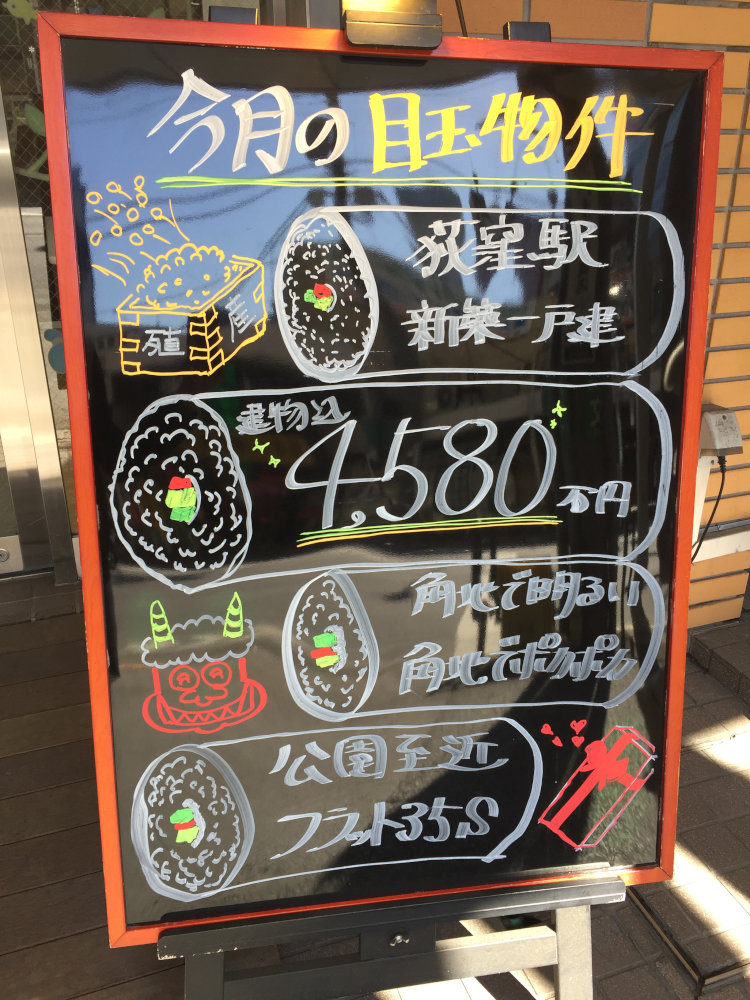 今月の目玉物件
荻窪駅
新築一戸建
殖産
建物込
4,580万円
角地で明るい
角地でポカポカ
公園至近
フラット35S